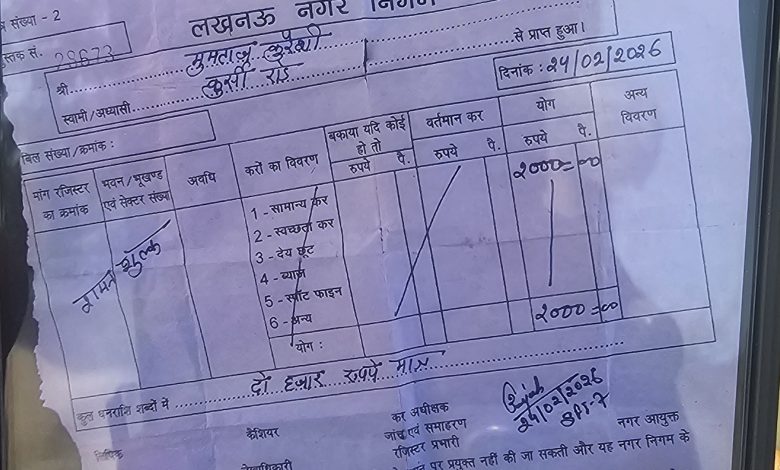 संख्या - 2
लखनऊ नगर निगम
पुस्तक सं. 28673
श्री मुमताज कुरैशी से प्राप्त हुआ।
स्वामी/अध्यासी कुर्सी रोड
दिनांक : 24/02/2026
बिल संख्या/क्रमांक :
मांग रजिस्टर का क्रमांक
भवन/भूखण्ड एवं सेक्टर संख्या
अवधि
करों का विवरण
बकाया यदि कोई हो तो
रुपये पै.
वर्तमान कर
रुपये पै.
योग
रुपये पै.
अन्य विवरण
2000=00
शुल्क
1 - सामान्य कर
2 - स्वच्छता कर
3 - देय छूट
4 - ब्याज
5 - स्पॉट फाइन
6 - अन्य
योग :
2000=00
कुल धनराशि शब्दों में दो हजार रुपये मात्र
24/02/2026
लिपिक
कैशियर
कर अधीक्षक
जांच एवं समाहरण
रजिस्टर प्रभारी
नगर आयुक्त
पर प्रयुक्त नहीं की जा सकती और यह नगर निगम के